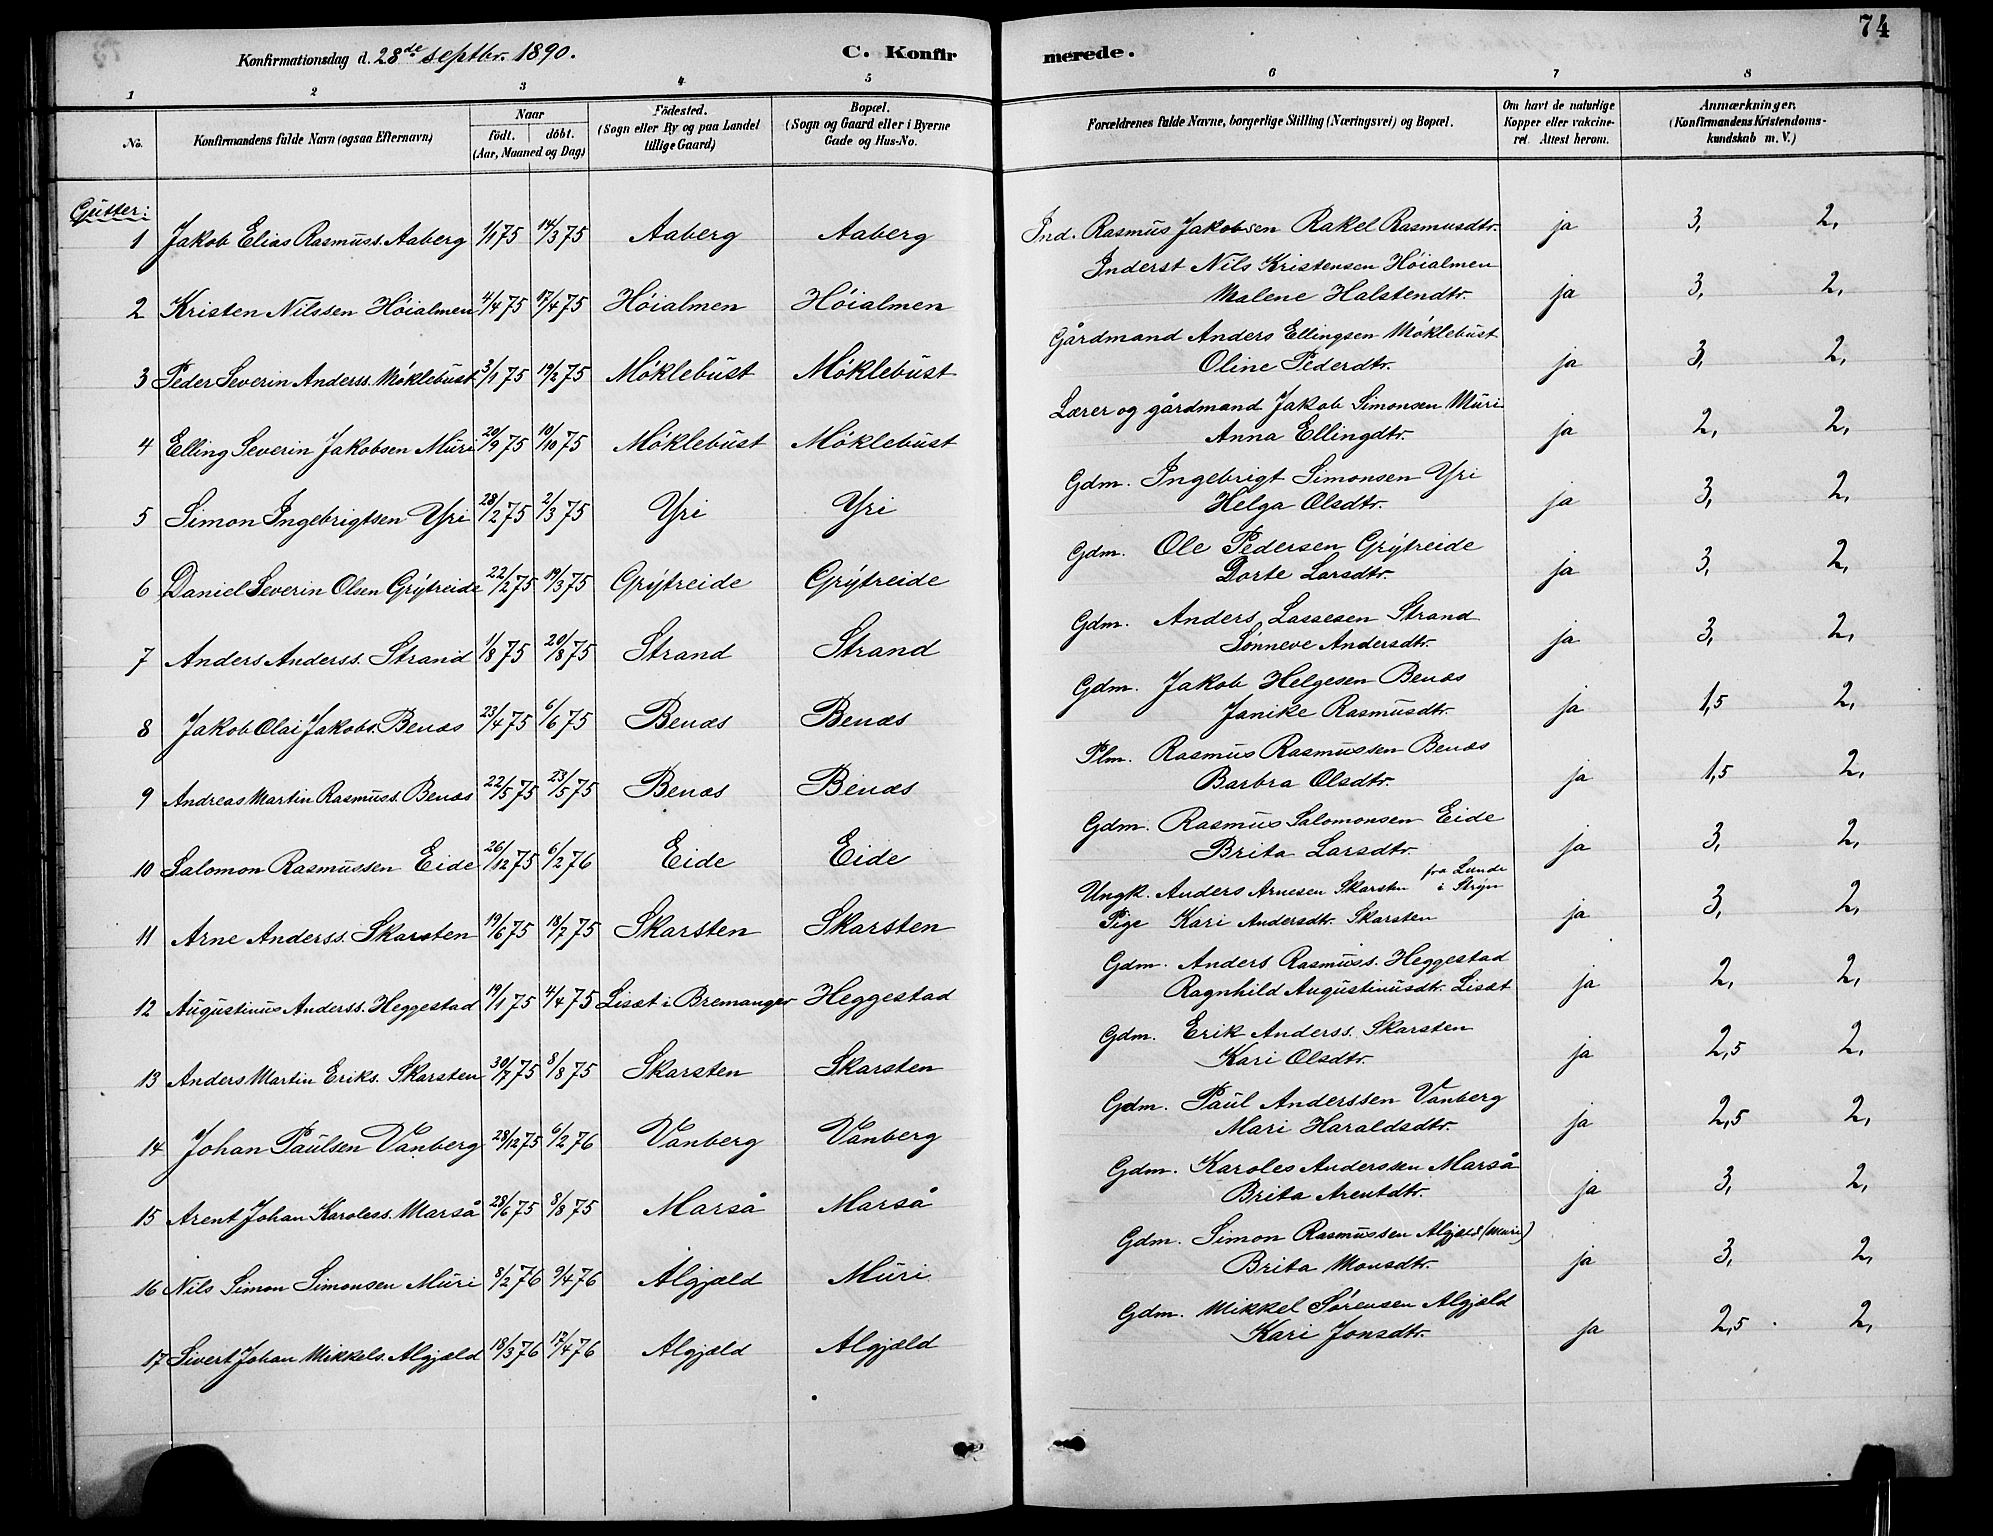 74
Konfirmationsdag d. 28de septbr. 1890. C. Konfirmerede.
1 2 3 4 5 6 7 8
No. Konfirmandens fulde Navn (ogsaa Efternavn) Naar födt. döbt. (Aar, Maaned og Dag) Födested. (Sogn eller By og paa Landet tillige Gaard) Bopæl. (Sogn og Gaard eller i Byerne Gade og Hus-No. Forældrenes fulde Navne, borgerlige Stilling (Næringsvei) og Bopæl. Om havt de naturlige Kopper eller vakcineret. Attest herom. Anmærkninger. (Konfirmandens Kristendomskundskab m. V.)
Gutter:
1 Jakob Elias Rasmuss. Aaberg 1/1 75 14/3 75 Aaberg Aaberg Ind. Rasmus Jakobsen Rakel Rasmusdtr. ja 3, 2,
Inderst Nils Kristensen Höialmen
2 Kristen Nilssen Höialmen 4/4 75 17/4 75 Höialmen Höialmen Malene Halstendtr. ja 3, 2,
Gårdmand Anders Ellingsen Möklebust
3 Peder Severin Anderss. Möklebust 3/1 75 19/2 75 Möklebust Möklebust Oline Pederdtr. ja 3, 2,
Lærer og gårdmand Jakob Simonsen Muri
4 Elling Severin Jakobsen Muri 20/9 75 10/10 75 Möklebust Möklebust Anna Ellingdtr. ja 2, 2,
Gdm. Ingebrigt Simonsen Yri
5 Simon Ingebrigtsen Yri 28/2 75 2/3 75 Yri Yri Helga Olsdtr. ja 3, 2,
Gdm. Ole Pedersen Grytreide
6 Daniel Severin Olsen Grytreide 22/2 75 19/3 75 Grytreide Grytreide Dorte Larsdtr. ja 3, 2,
Gdm. Anders Lassesen Strand
7 Anders Anderss. Strand 1/8 75 20/8 75 Strand Strand Sönneve Andersdtr. ja 3, 2,
Gdm. Jakob Helgesen Benæs
8 Jakob Olai Jakobs. Benæs 23/4 75 6/6 75 Benæs Benæs Janike Rasmusdtr. ja 1,5 2,
Plm. Rasmus Rasmussen Benæs
9 Andreas Martin Rasmuss. Benæs 22/5 75 23/5 75 Benæs Benæs Barbra Olsdtr. ja 1,5 2,
Gdm. Rasmus Salomonsen Eide
10 Salomon Rasmussen Eide 26/12 75 6/2 76 Eide Eide Brita Larsdtr. ja 3, 2,
Ungk. Anders Arnesen Skarsten fra Lunde i Stryn
11 Arne Anderss. Skarsten 19/6 75 18/7 75 Skarsten Skarsten Pige Kari Andersdtr. Skarsten ja 3, 2,
Gdm. Anders Rasmuss. Heggestad
12 Augustinus Anderss. Heggestad 19/1 75 4/4 75 Lisæt i Bremanger Heggestad Ragnhild Augustinusdtr. Lisæt ja 2, 2,
Gdm. Erik Anderss. Skarsten
13 Anders Martin Eriks. Skarsten 30/7 75 8/8 75 Skarsten Skarsten Kari Olsdtr. ja 2,5 2,
Gdm. Paul Anderssen Vanberg
14 Johan Paulsen Vanberg 28/12 75 6/2 76 Vanberg Vanberg Mari Haraldsdtr. ja 2,5 2,
Gdm. Karoles Anderssen Marså
15 Arent Johan Karoless. Marså 28/6 75 8/8 75 Marså Marså Brita Arentdtr. ja 3, 2,
Gdm. Simon Rasmussen Algjæld (Muri)
16 Nils Simon Simonsen Muri 8/2 76 9/4 76 Algjæld Muri Brita Monsdtr. ja 3, 2,
Gdm. Mikkel Sörensen Algjæld
17 Sivert Johan Mikkels. Algjæld 18/3 76 17/4 76 Algjæld Algjæld Kari Jonsdtr. ja 2,5 2,